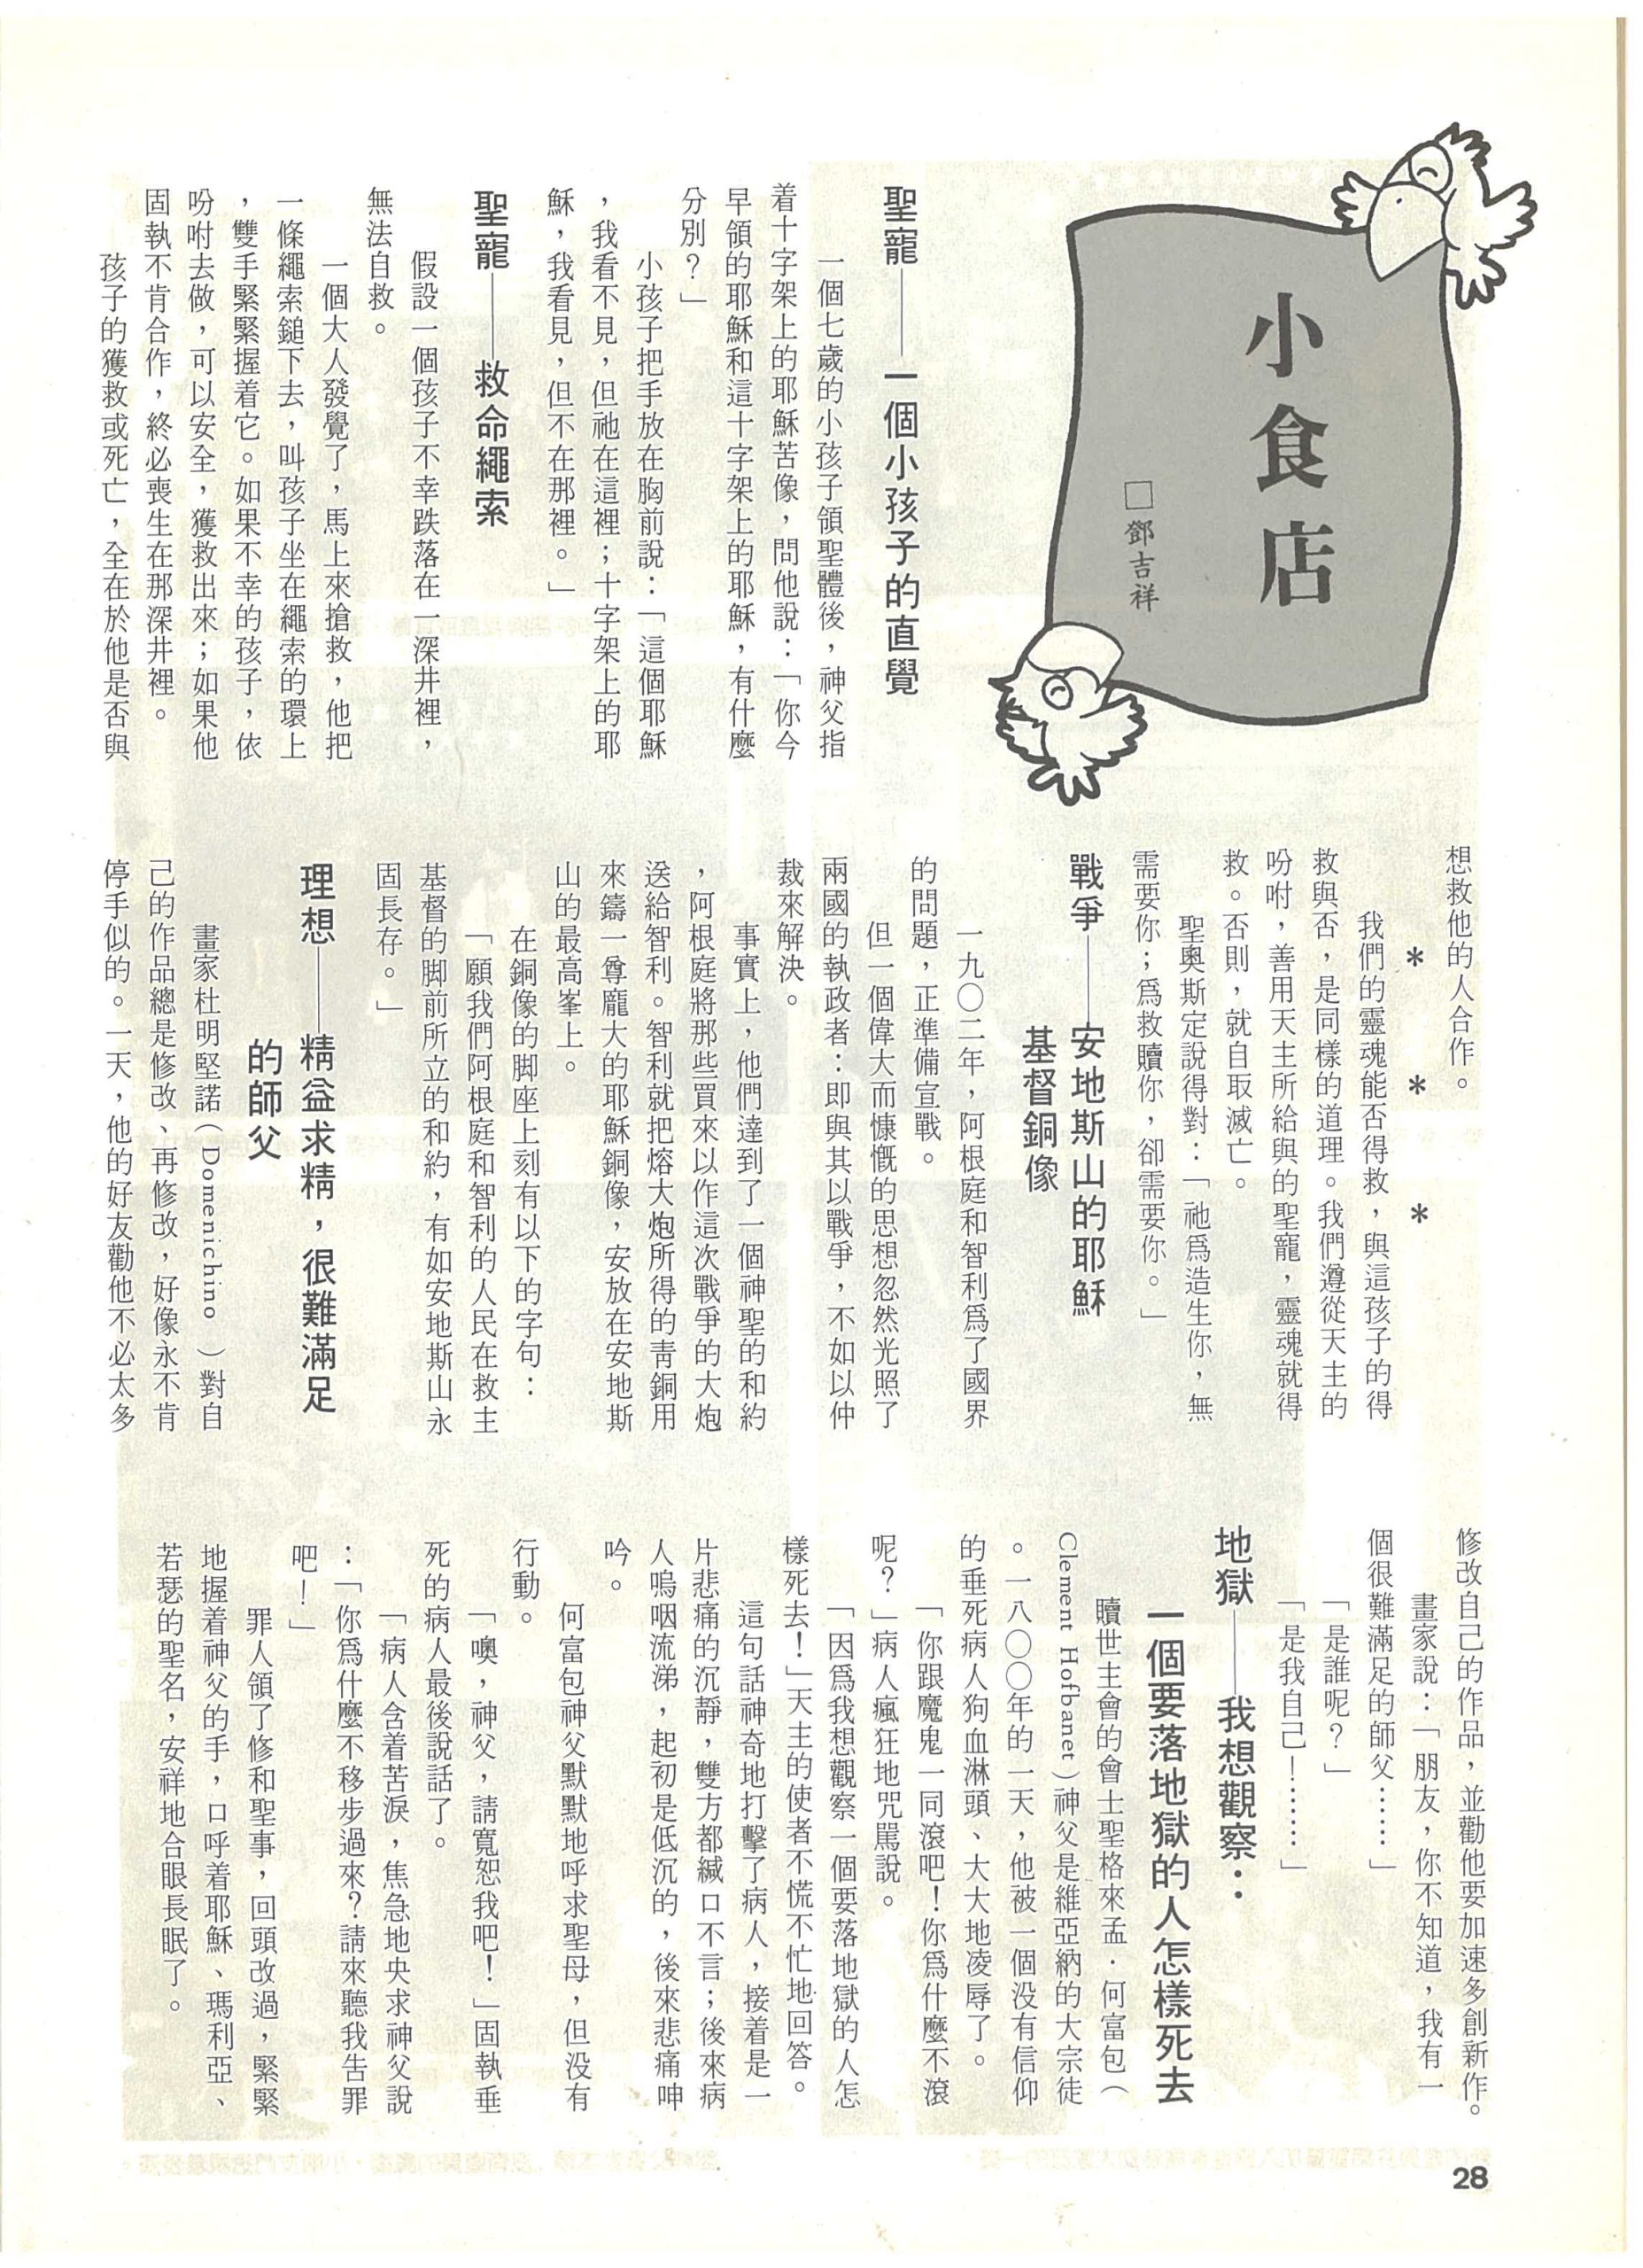 小食店
□鄧吉祥
聖寵——一個小孩子的直覺
一個七歲的小孩子領聖體後，神父指
着十字架上的耶穌苦像，問他說：「你今
早領的耶穌和這十字架上的耶穌，有什麼
分別？」
小孩子把手放在胸前說：「這個耶穌
，我看不見，但祂在這裡；十字架上的耶
穌，我看見，但不在那裡。」
聖寵——救命繩索
假設一個孩子不幸跌落在一深井裡，
無法自救。
一個大人發覺了，馬上來搶救，他把
一條繩索鎚下去，叫孩子坐在繩索的環上
，雙手緊緊握着它。如果不幸的孩子，依
吩咐去做，可以安全，獲救出來；如果他
固執不肯合作，終必喪生在那深井裡。
孩子的獲救或死亡，全在於他是否與
想救他的人合作。
＊　＊　＊
我們的靈魂能否得救，與這孩子的得
救與否，是同樣的道理。我們遵從天主的
吩咐，善用天主所給與的聖寵，靈魂就得
救。否則，就自取滅亡。
聖奧斯定說得對：「祂爲造生你，無
需要你；爲救贖你，卻需要你。」
戰爭——安地斯山的耶穌
基督銅像
一九〇二年，阿根庭和智利爲了國界
的問題，正準備宣戰。
但一個偉大而慷慨的思想忽然光照了
兩國的執政者：即與其以戰爭，不如以仲
裁來解決。
事實上，他們達到了一個神聖的和約
，阿根庭將那些買來以作這次戰爭的大炮
送給智利。智利就把熔大炮所得的青銅用
來鑄一尊龐大的耶穌銅像，安放在安地斯
山的最高峯上。
在銅像的脚座上刻有以下的字句：
「願我們阿根庭和智利的人民在救主
基督的脚前所立的和約，有如安地斯山永
固長存。」
理想——精益求精，很難滿足
的師父
畫家杜明堅諾（Domenichino）對自
己的作品總是修改、再修改，好像永不肯
停手似的。一天，他的好友勸他不必太多
修改自己的作品，並勸他要加速多創新作。
畫家說：「朋友，你不知道，我有一
個很難滿足的師父……」
「是誰呢？」
「是我自己！……」
地獄——我想觀察：
一個要落地獄的人怎樣死去
贖世主會的會士聖格來孟．何富包（
Clement Hofbanet）神父是維亞納的大宗徒
。一八〇〇年的一天，他被一個没有信仰
的垂死病人狗血淋頭、大大地凌辱了。
「你跟魔鬼一同滾吧！你爲什麼不滾
呢？」病人瘋狂地咒罵說。
「因爲我想觀察一個要落地獄的人怎
樣死去！」天主的使者不慌不忙地回答。
這句話神奇地打擊了病人，接着是一
片悲痛的沉靜，雙方都緘口不言；後來病
人嗚咽流涕，起初是低沉的，後來悲痛呻
吟。
何富包神父默默地呼求聖母，但没有
行動。
「噢，神父，請寬恕我吧！」固執垂
死的病人最後說話了。
「病人含着苦淚，焦急地央求神父說
：「你爲什麼不移步過來？請來聽我吿罪
吧！」
罪人領了修和聖事，回頭改過，緊緊
地握着神父的手，口呼着耶穌、瑪利亞、
若瑟的聖名，安祥地合眼長眠了。
28